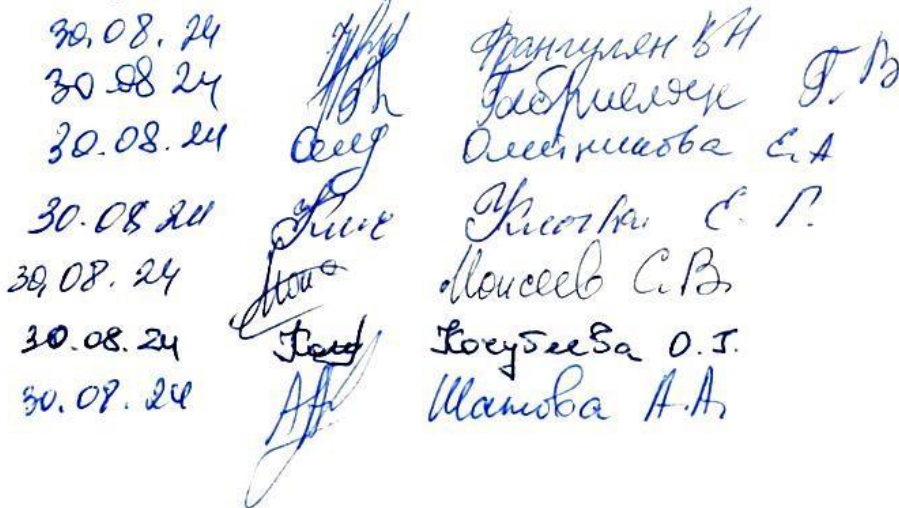 30.08.24 Франгулян В Н
30 08 24 Габриелян Г. В
30.08.24 Олейникова Е.А
30.08.24 Е. Г.
30.08.24 Моисеев С.В.
30.08.24 Кочубеева О.Г.
30.08.24 Шатова А.А.